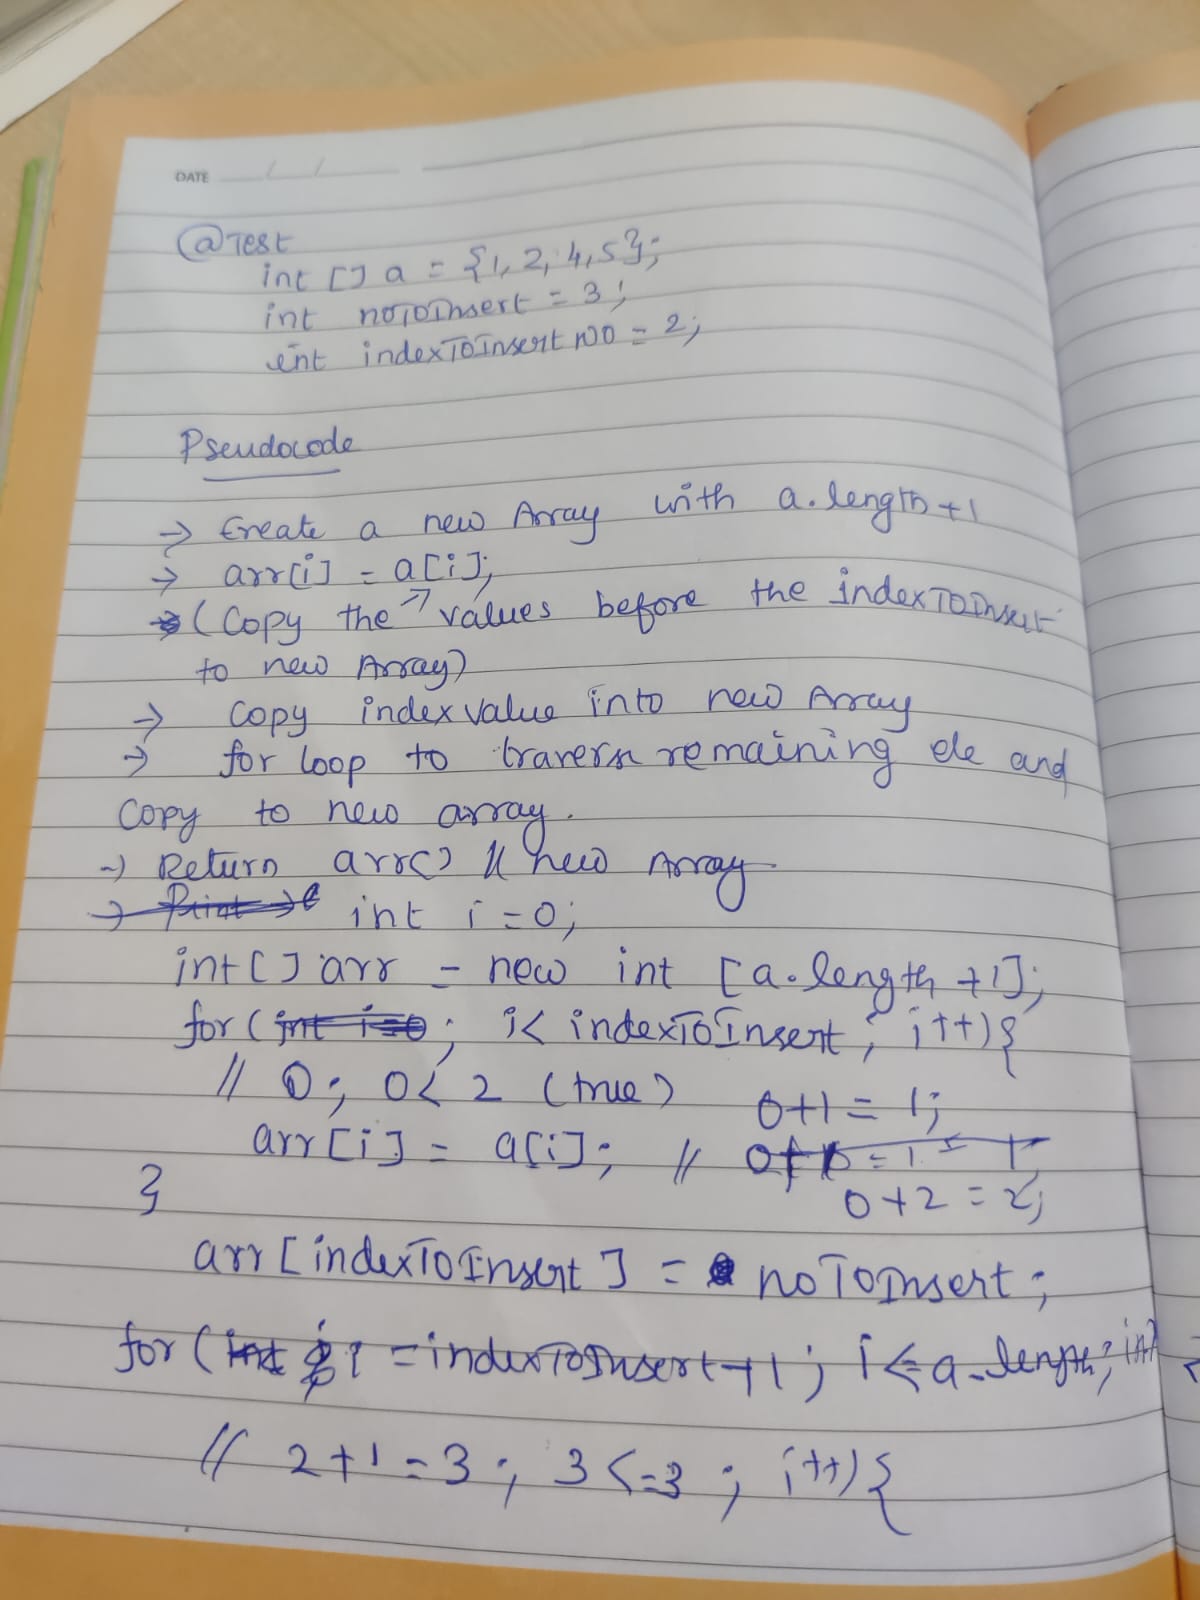 DATE
@Test
int [] a = {1, 2, 4, 5};
int noToInsert = 3;
int indexToInsert no = 2;
Pseudocode
→ Create a new Array with a.length+1
→ arr[i] = a[i];
→ (Copy the values before the indexToInsert
to new Array)
→ Copy index value into new Array
→ for loop to travers remaining ele and
Copy to new array.
→ Return arr() // new Array
→ Print int i = 0;
int [] arr = new int [a.length +1];
for (int i=0; i< indexToInsert; i++){
// 0; 0< 2 (true) 0+1 = 1;
arr[i] = a[i]; //
0+2 = 2;
}
arr [indexToInsert] = noToInsert;
for (int i = indexToInsert+1; i<=a.length; i++
// 2+1=3; 3<=3; i++){